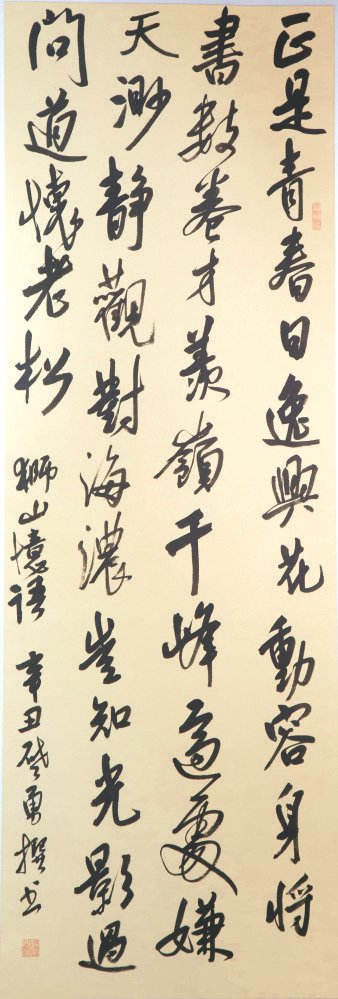 正是青春日逸興花動容身將
書數卷才羨嶺千峰遠處嫌
天渺靜觀對海濃豈知光影過
問道懷老松
獅山憶語 辛丑 勇撰书